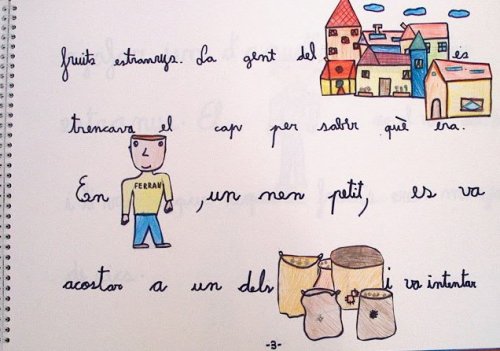 fruits estranys. La gent del es
trencava el cap per sabir què era.
En FERRAN, un nen petit, es va
acostar a un dels i va intentar
-3-